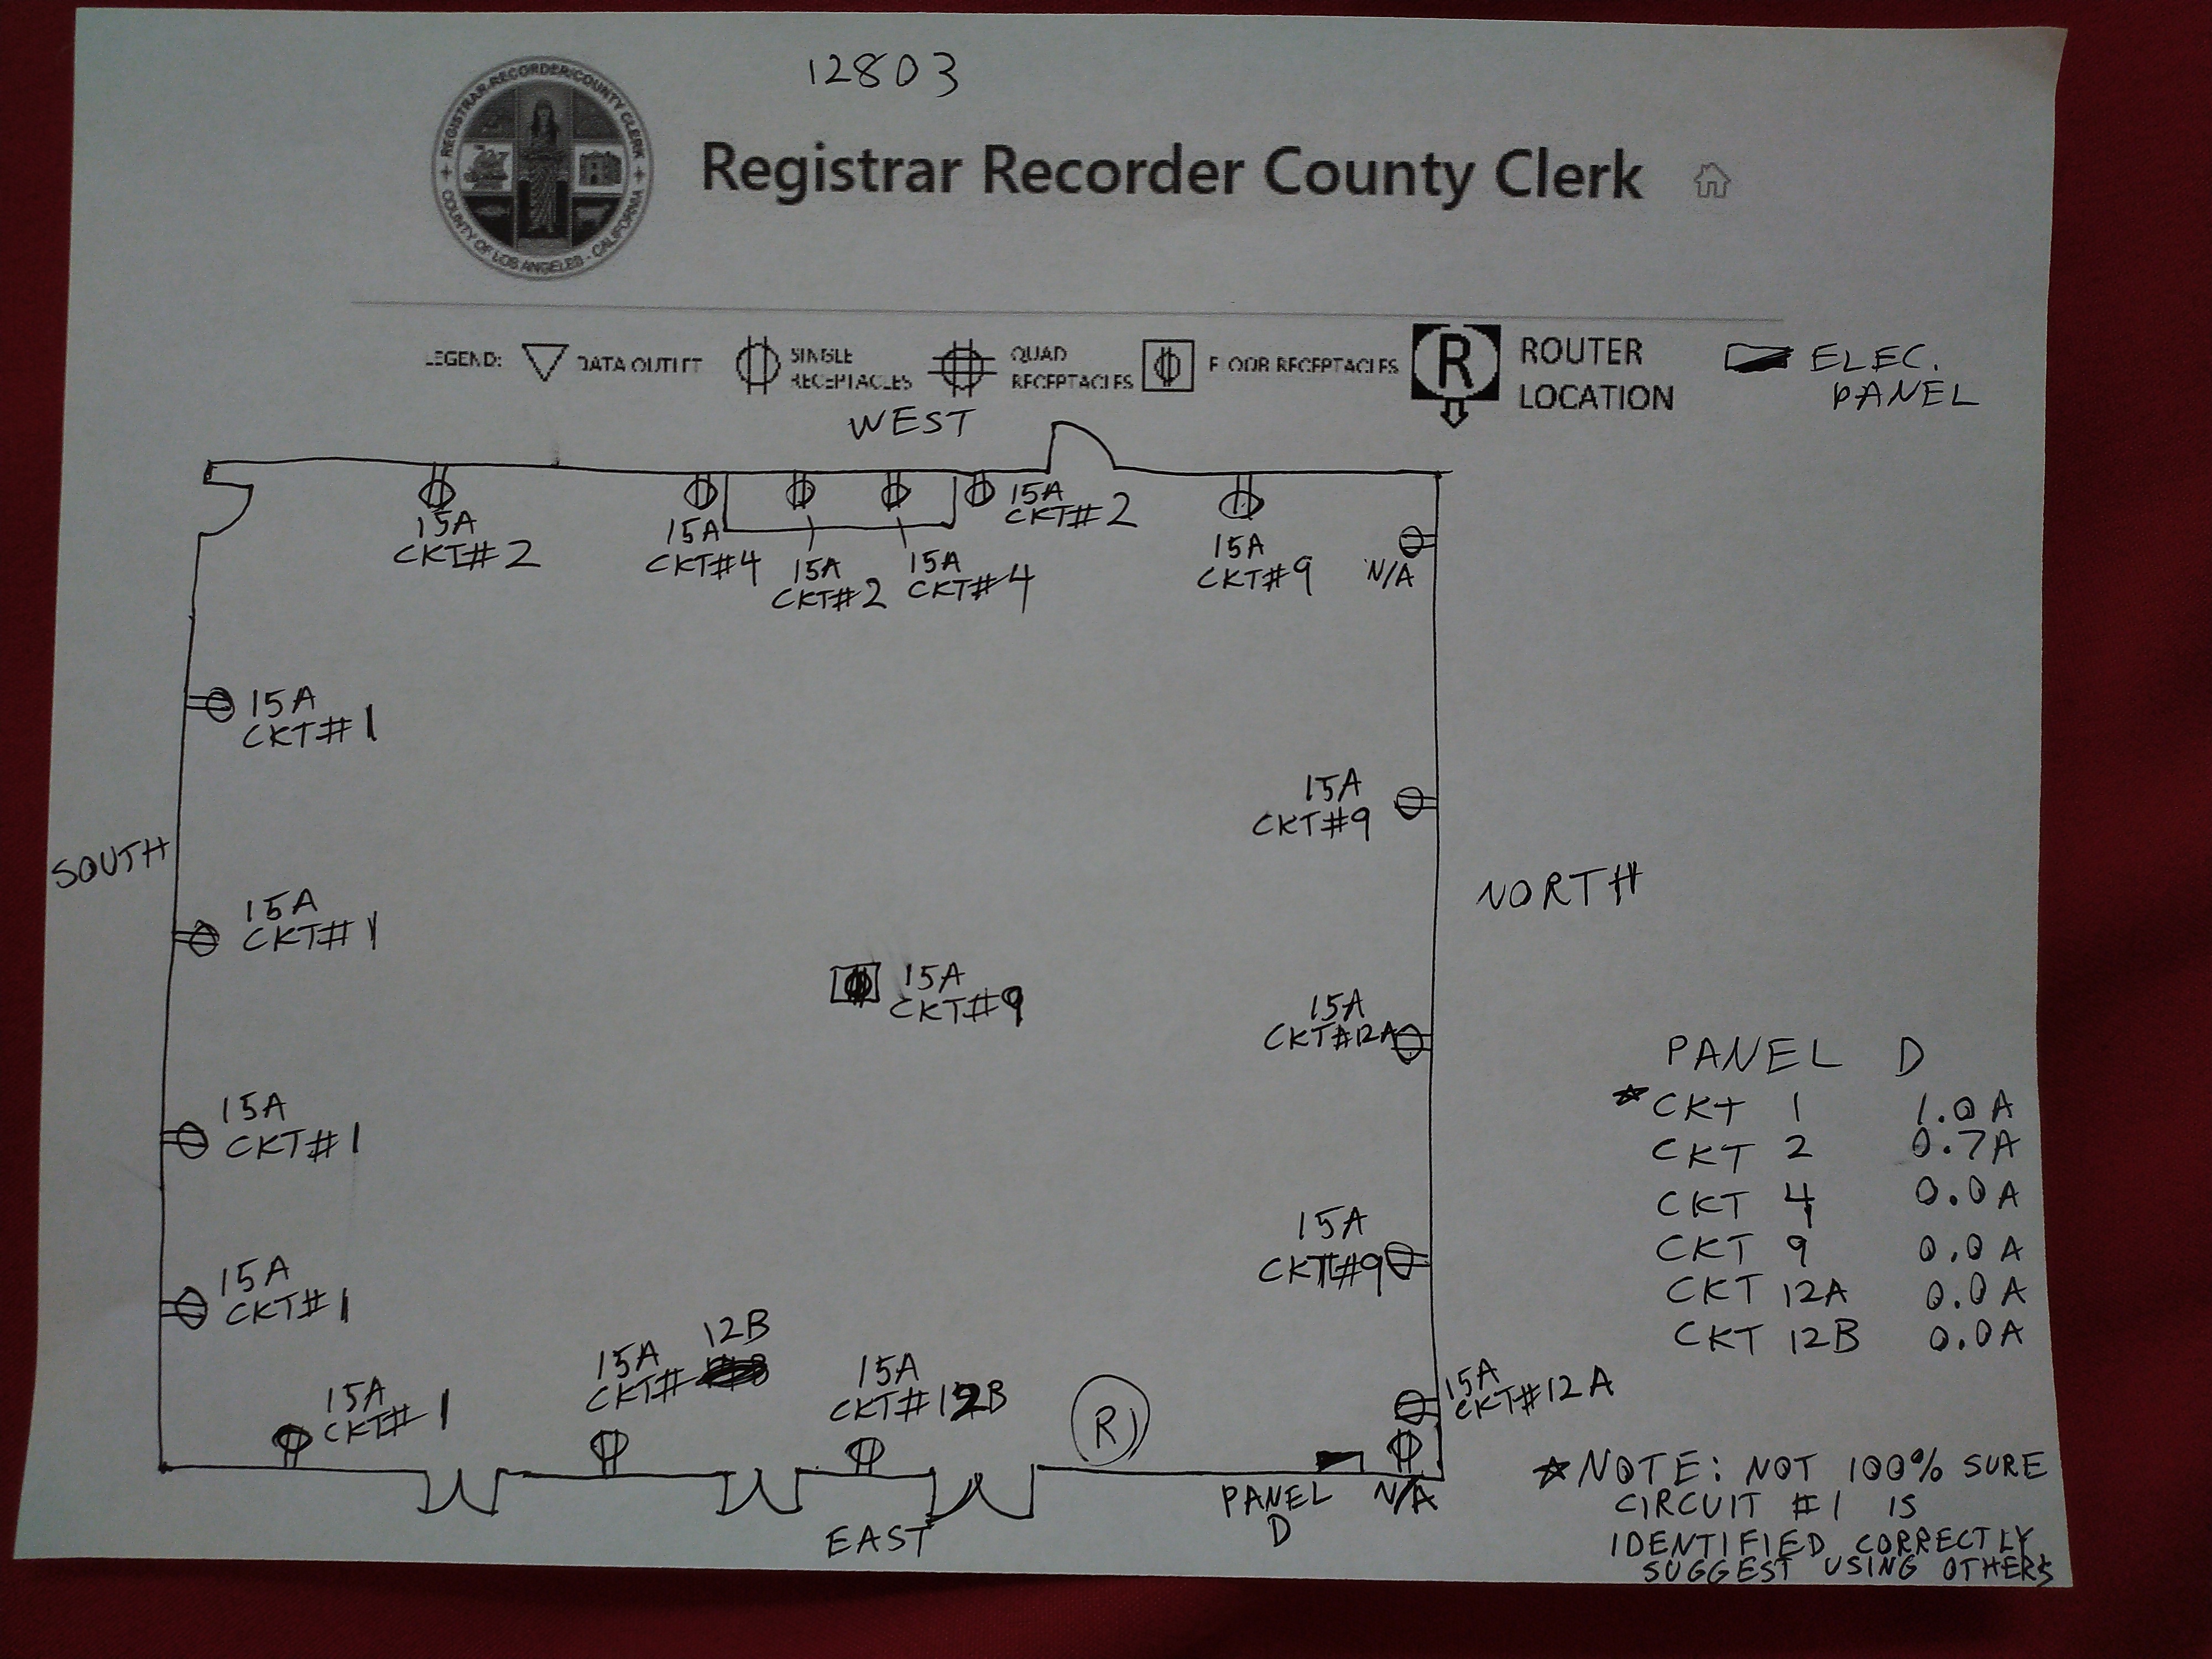 12803
REGISTRAR-RECORDER/COUNTY CLERK
COUNTY OF LOS ANGELES - CALIFORNIA
Registrar Recorder County Clerk
LEGEND:
DATA OUTLET
SINGLE
RECEPTACLES
QUAD
RECEPTACLES
FLOOR RECEPTACLES
R
ROUTER
LOCATION
ELEC.
PANEL
WEST
15A
CKT#2
15A
CKT#4
15A
CKT#2
15A
CKT#4
15A
CKT#2
15A
CKT#9
N/A
15A
CKT#1
15A
CKT#9
SOUTH
NORTH
15A
CKT#1
15A
CKT#9
15A
CKT#12A
15A
CKT#1
15A
CKT#9
15A
CKT#1
15A
CKT#1
12B
15A
CKT#
15A
CKT#12B
R
15A
CKT#12A
PANEL
D
N/A
EAST
PANEL D
*CKT 1 1.0A
CKT 2 0.7A
CKT 4 0.0A
CKT 9 0.0A
CKT 12A 0.0A
CKT 12B 0.0A
*NOTE: NOT 100% SURE
CIRCUIT #1 IS
IDENTIFIED CORRECTLY
SUGGEST USING OTHERS